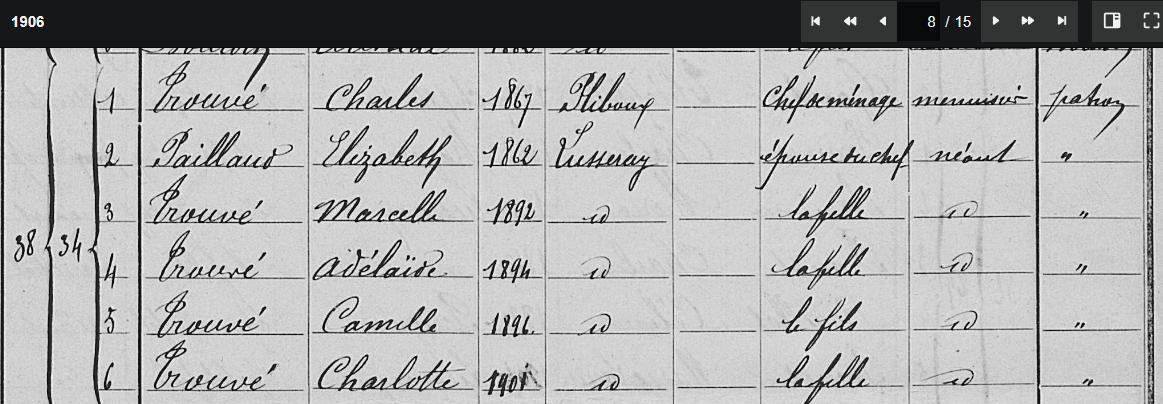 1906
8 / 15
1 Trouvé Charles 1867 Pliboux Chef de ménage menuisier patron
2 Paillaud Elizabeth 1862 Lusseray épouse du chef néant "
3 Trouvé Marcelle 1892 id la fille id "
38 34
4 Trouvé Adélaïde 1894 id la fille id "
5 Trouvé Camille 1896. id le fils id "
6 Trouvé Charlotte 1901 id la fille id "